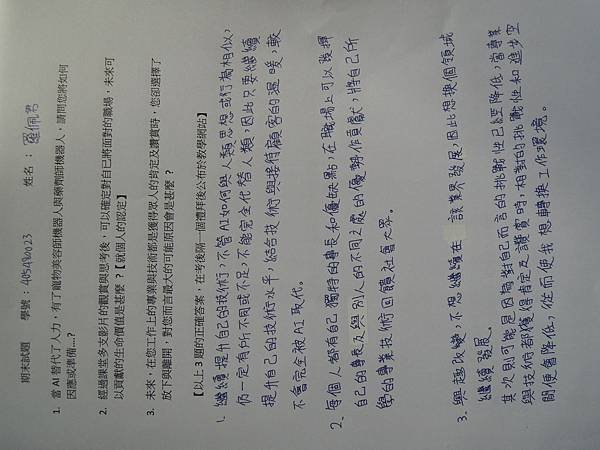 期末試題 學號：405480023 姓名：
1. 當AI替代了人力，有了寵物美容師機器人與藥劑師機器人，請問您將如何
因應或準備...?
2. 經過課堂多支影片的觀賞與思考後，可以確定對自己將面對的職場，未來可
以貢獻的生命價值是甚麼？【就個人的認定】
3. 未來，在您工作上的專業與技術都是獲得眾人的肯定及讚賞時，您卻選擇了
放下與離開，對您而言最大的可能原因會是甚麼？
【以上3題的正確答案，在考後隔一個禮拜後公布於教學網站】
1. 繼續提升自己的技術，不管AI如何與人類思想或行為相似，
仍一定有所不同或不足，不能完全代替人類，因此只要繼續
提升自己的技術水平，結合技術與接待顧客的溫暖，較
不會完全被AI取代。
2. 每個人都有自己獨特的專長和優缺點，在職場上可以發揮
自己的專長及與別人的不同之處的優勢作貢獻，將自己所
學的專業技術回饋社會大眾。
3. 興趣改變，不想繼續在該業界發展，因此想換個領域
繼續發展。
其次則可能是因為對自己而言的挑戰性已經降低，當專業
與技術都獲得肯定及讚賞時，相對的挑戰性和進步空
間便會降低，從而使我想轉換工作環境。